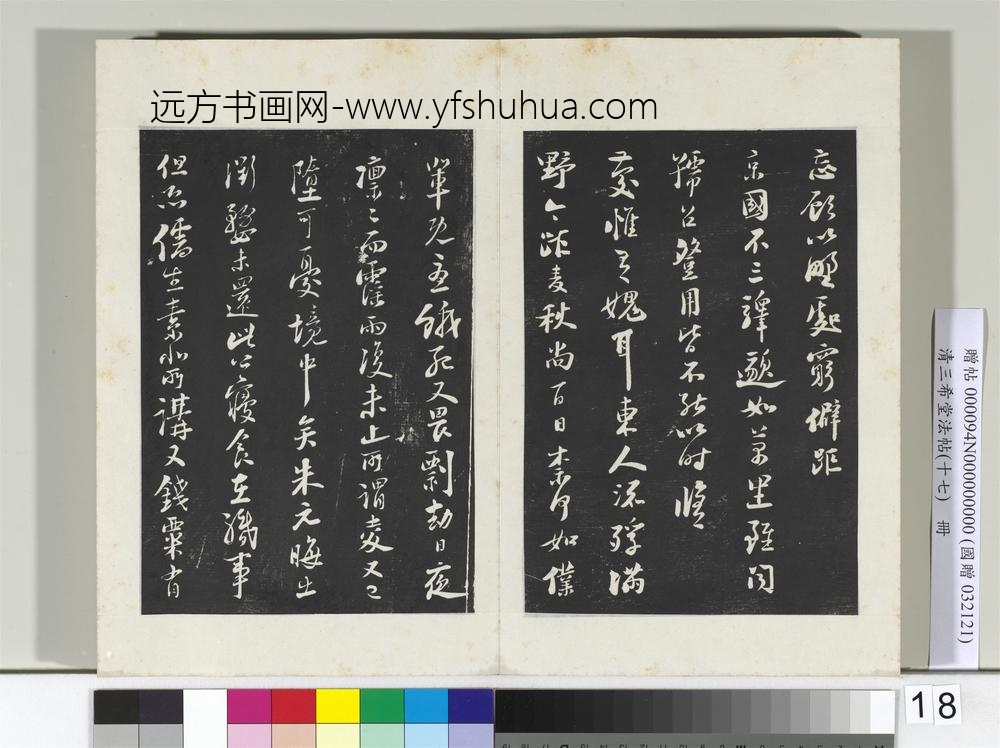 远方书画网-www.yfshuhua.com
忘顾以野处穷僻距
京國不三驛邈如万里雖闻
孺召登用皆不能以时修
慶惟有媿耳東人流殍满
野今距麦秋尚百日未何如僕
輩既无餓死又畏剽劫日夜
凛〻而霪雨復未止所謂麦又已
墮可憂境中矣朱元晦出
衢婺未還此公寢食在職事
但恐儒生素非所講又錢粟有
贈帖 000094N000000000 (國贈 032121)
清三希堂法帖(十七) 冊
18